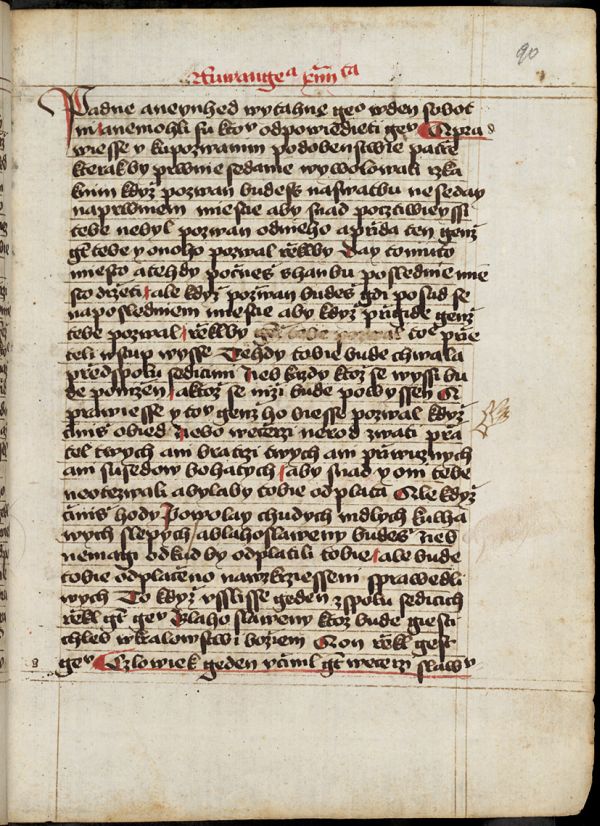 90
Euwangea xiiii ta
Padne aneynhed wytahne geo wden sobot
ni anemohli su ktoy odpowiedieti gey A pra
wiesse y kupozwanim podobenstwie patrie
kterak by prwnie sedanie wywolowali rzka
knim kdyz pozwan budess naswatbu neseday
naprwniem miestie aby snad pocztiwieyssi
tebe nebyl pozwan odnieho aprida ten genz
gt tebe y onoho pozwal rekl by Day tomuto
miesto atehdy pocnes shanbu poslednie mie
sto drzeti ale kdyz pozwan budes gdi posad se
naposledniem miestie aby kdyz prigide genz
tebe pozwal rekl by tobe prie
teli wstup wysse Tehdy tobie bude chwala
predspolu sedicimi Neb kazdy ktoz se wyssi bu
de ponizen aktoz se nizi bude powyssen A
prawiesse y toy genz ho biesse pozwal kdyz
cinis obied nebo weterzi nerod zwati pra
tel twych ani bratrzi twych ani priwuznych
ani susedow bohatych aby snad y oni tebe
neotezwali abylaby tobie odplata Ale kdyz
cinis hody Powolay chudych mdlych kulha
wych slepych ablahoslaweny budes neb
nemagi odkud by odplatili tobie ale bude
tobie odplaceno nawzkrziesseni sprawedli
wych To kdyz vslisse geden zspolu sedicich
rekl gt gey Blahoslaweny ktoz bude giesti
chleb wkralowstwi boziem A on rekl gest
gey Czlowiek geden vcinil gt weterzi slawy